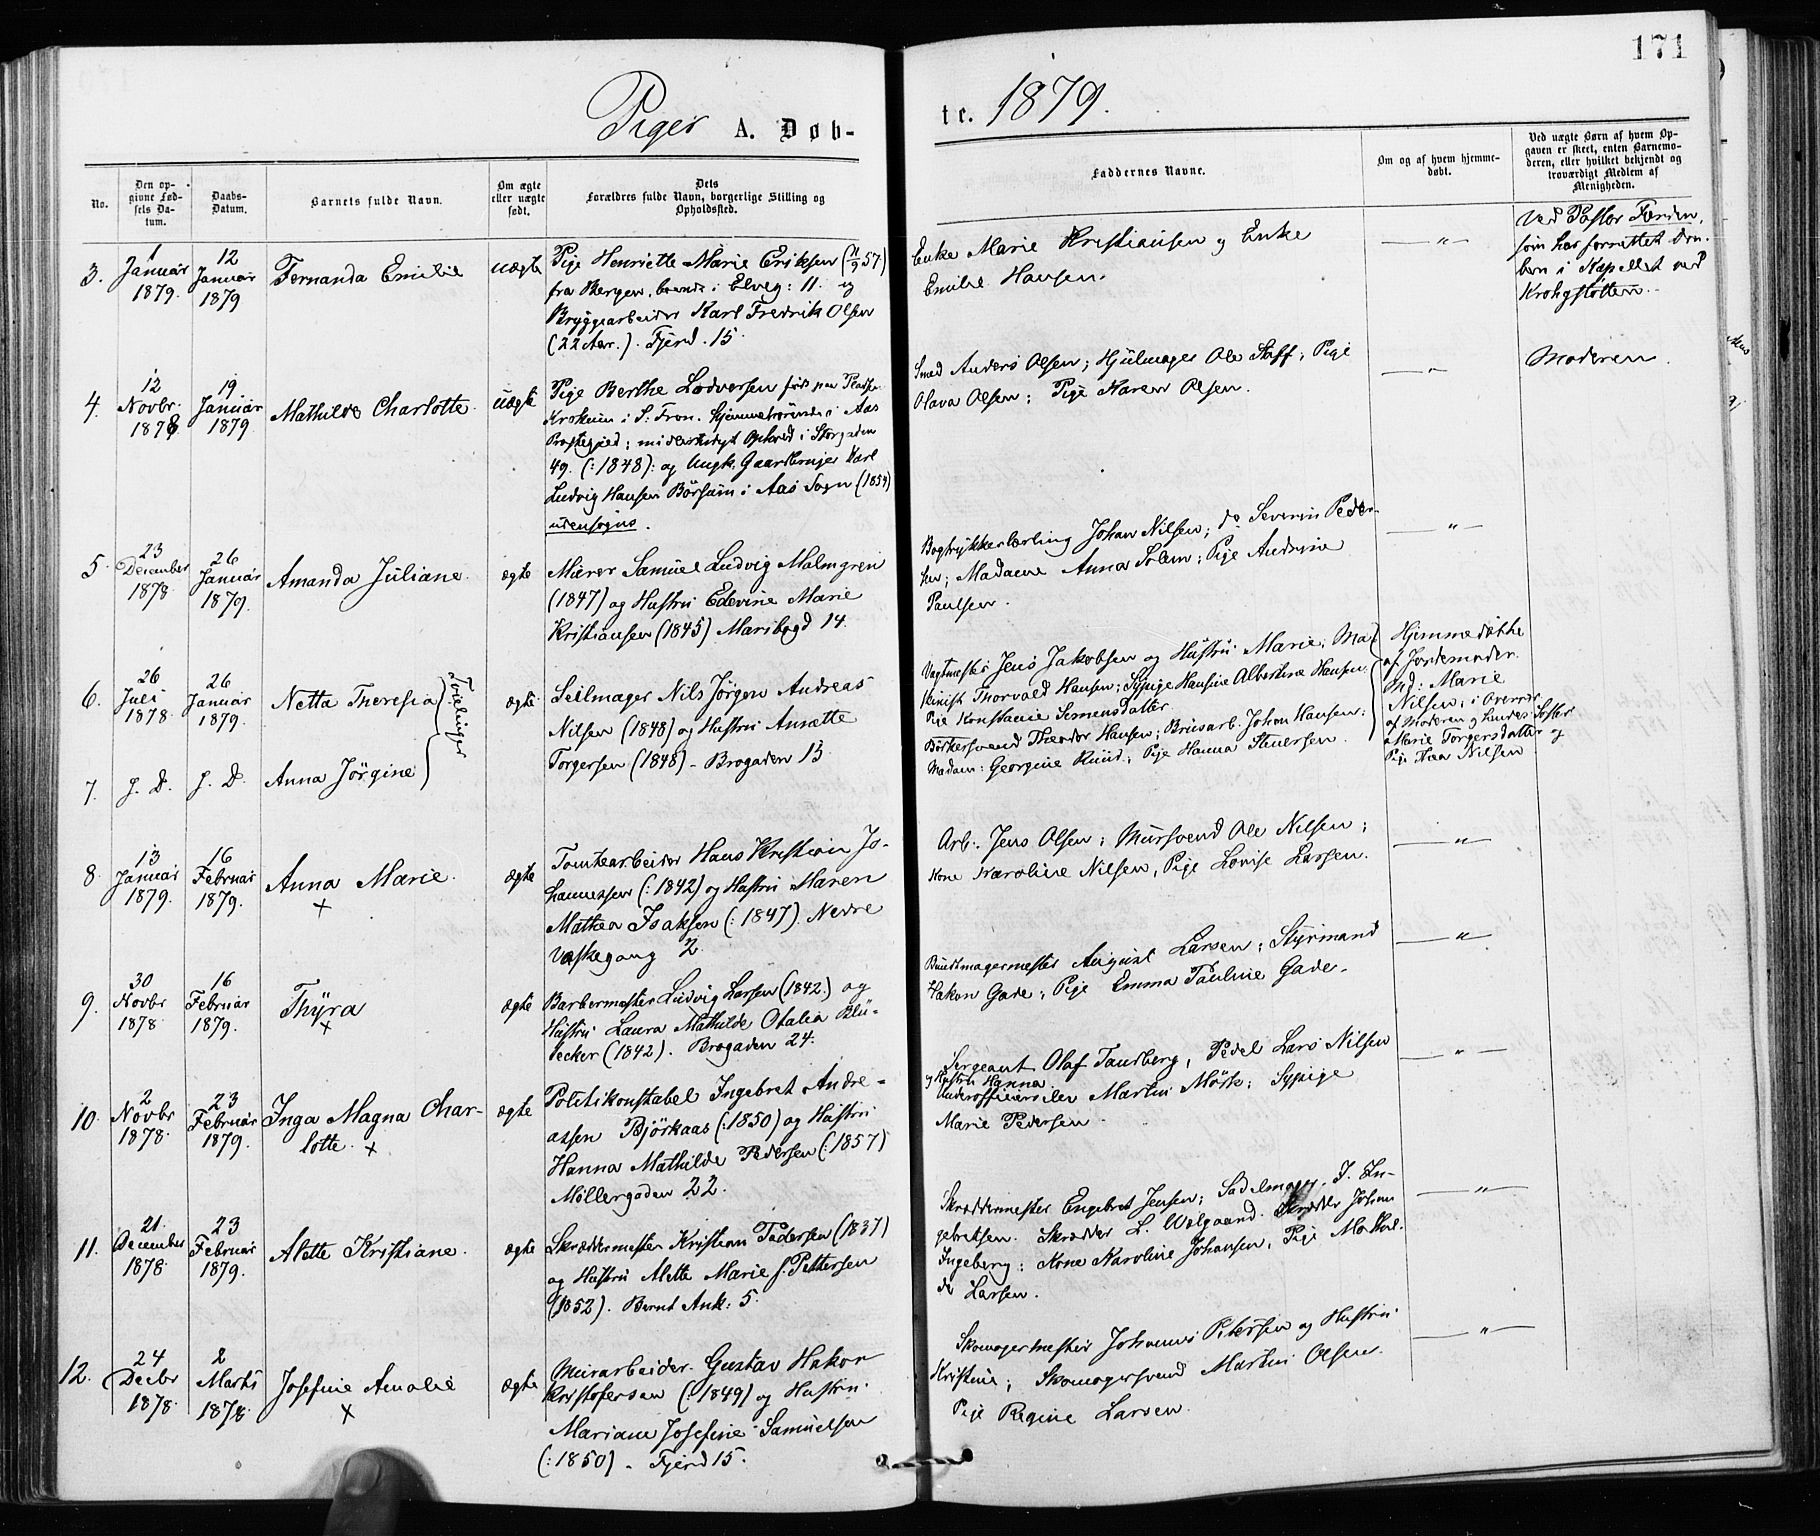 171
Piger A. Døb-
te. 1879.
No.
Den op-
givne Fød-
sels Da-
tum.
Daabs-
Datum.
Barnets fulde Navn.
Om ægte
eller uægte
født.
Dets
Forældres fulde Navn, borgerlige Stilling og
Opholdssted.
Faddernes Navne.
Om og af hvem hjemme-
døbt.
Ved uægte Børn af hvem Op-
gaven er skeet, enten Barnemo-
deren, eller hvilket bekjendt og
troværdigt Medlem af
Menigheden.
3.
1
Januar
1879.
12
Januar
1879
Fernanda Emilie
uægte
Pige Henriette Marie Eriksen (11/9 57)
fra Bergen, boende i Elveg: 11. og
Bryggearbeider Karl Fredrik Olsen
(22 Aar.). Fjerd. 15.
Enke Marie Kristiansen og Enke
Emilie Hansen.
— " —
Ved Pastor Færden,
som har forrettet Daa-
ben i Kapellet ved
Krohgstøtten.
4.
12
Novbr.
1878
19
Januar
1879.
Mathilde Charlotte.
uægte
Pige Berthe Lodversen født paa Pladsen
i S. Fron. hjemmehørende i Aas
Prestegjed; midlertidigt Ophold i Storgaden
49. (: 1848): og Ungk. Gaardbruger Karl
Ludvig Hansen Börsum i Aas Sogn (1854)
udensogns.
Smed Anders Olsen; Hjulmager Ole Staff; Pige
Olava Olsen; Pige Karen Olsen.
— " —
Moderen.
5.
23
December
1878.
26
Januar
1879.
Amanda Juliane.
ægte
Murer Samuel Ludvig Malmgren
(1847) og Hustru Edevine Marie
Kristiansen (1845) Maribogd 14.
Bogtrykkerlærling Johan Nilsen; do Severin Peder-
sen; Madame Anna Solem; Pige Andrine
Paulsen.
— " —
6.
26
Juli
1878.
26
Januar
1879.
Netta Theresia
Tvelinger
ægte
Seilmager Nils Jörgen Andreas
Nilsen (1848) og Hustru Annette
Torgersen (1848) – Brogaden 13
Vagtmester Jens Jakobsen og Hustru Marie; Ma-
skinist Thorvald Hansen; Sypige Hansine Albertine Hansen.
Pige Konstance Simensdatter.
Hjemmedøbte
af Jordemoder
Md: Marie
Nilsen; i Overvær
af Moderen og hendes Søster
Marie Torgersdatter og
Pige Thea Nilsen
7.
J. D.
J. D.
Anna Jörgine
Theodor Hansen; Brusarb. Johan Hansen;
Madam: Georgine Knud; Pige Hanna Steuersen.
8.
13
Januar
1879.
16
Februar
1879.
Anna Marie.
+
ægte
Tomtearbeider Hans Kristian Jo-
hannessen (: 1842) og Hustru Maren
Mathea Isaksen (: 1847). Nedre
Vaskegang 2.
Arb: Jens Olsen; Mursvend Ole Nilsen;
Kone Karoline Nilsen, Pige Lovise Larsen.
— " —
9.
30
Novbr
1878.
16
Februar
1879.
Thyra
+
ægte
Barbermester Ludvig Larsen (1842.) og
Hustru Laura Mathilde Otalia Blü-
cker (1842). Brogaden 24.
Buntmagermester August Larsen; Styrmand
Hakon Gade; Pige Emma Pauline Gade.
— " —
10.
2
Novbr
1878.
23
Februar
1879.
Inga Magna Char-
lotte. +
ægte
Politikonstabel Ingebret Andre-
assen Björkaas (: 1850) og Hustru
Hanna Mathilde Pedersen (: 1857)
Møllergaden 22.
Sergeant Olaf Tandberg, Pedel Lars Nilsen
og Hustru Hanna.
Underofficerselev Martin Mörk; Sypige
Marie Pedersen.
— " —
11.
21.
December
1878.
23
Februar
1879.
Alette Kristiane.
ægte
Skræddermester Kristian Pedersen (1837)
og Hustru Alette Marie f. Pettersen
(1852). Bernt Ank: 5.
Skræddermester Engebret Jensen; Sadelmager J. In-
gebretsen. Skrædder L. Wolgaand. Skrædder Johan
Ingeberg; Kone Karoline Johansen, Pige Mathil-
de Larsen.
— " —
12.
24
Decbr
1878.
2
Marts
1878.
Josefine Amalie
+
ægte
Murarbeider. Gustav Hakon
Kristofersen (: 1849) og Hustru
Mariane Josefine Samuelsen
(: 1850) – Fjerd 15.
Skomagermester Johannes Petersen og Hustru
Kristine; Skomagersvend Martin Olsen.
Pige Regine Larsen.
— " —